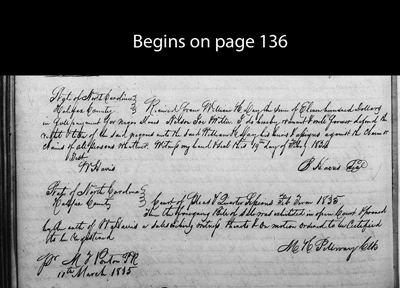 Begins on page 136
State of North Carolina
Halifax County Received from William H Day the Sum of Eleven hundred Dollars
in full payment for negro Slaves Nelson I do hereby warrant & will forever defend the
right & title of the said negroes unto the said William H Day his heirs & assigns against the claim or
claims of all persons whatever. Witness my hand & Seal this 19th day of 1834
Test
W Harris B Harris
State of North Carolina
Halifax County Court of Pleas & Quarter Sessions Feb Term 1835
Then the foregoing Bill of Sale was exhibited in open Court & proved
by the oath of W Harris a subscribing witness thereto & on motion ordered to be Certified
& Registered
M H Clk
Pr M T PR
12th March 1835